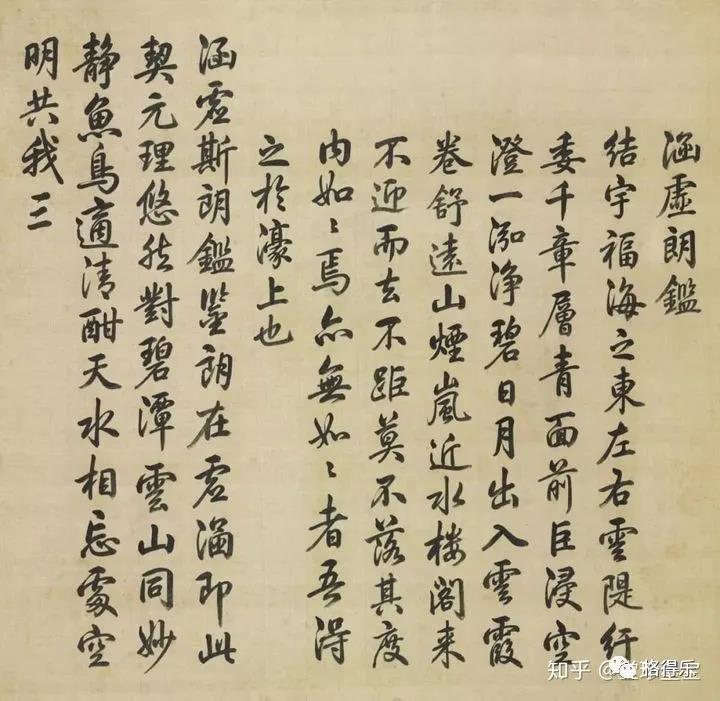 涵虛朗鑑
結宇福海之東左右雲隄紆
委千章層青面前巨浸空
澄一泓淨碧日月出入雲霞
卷舒遠山煙嵐近水楼閣来
不迎而去不距莫不落其度
内如〻焉亦無如〻者吾得
之於濠上也
涵虛斯朗鑑鑒朗在虛涵即此
契元理悠然對碧潭雲山同妙
靜魚鳥適清酣天水相忘處空
明共我三
知乎 @
珞得乐